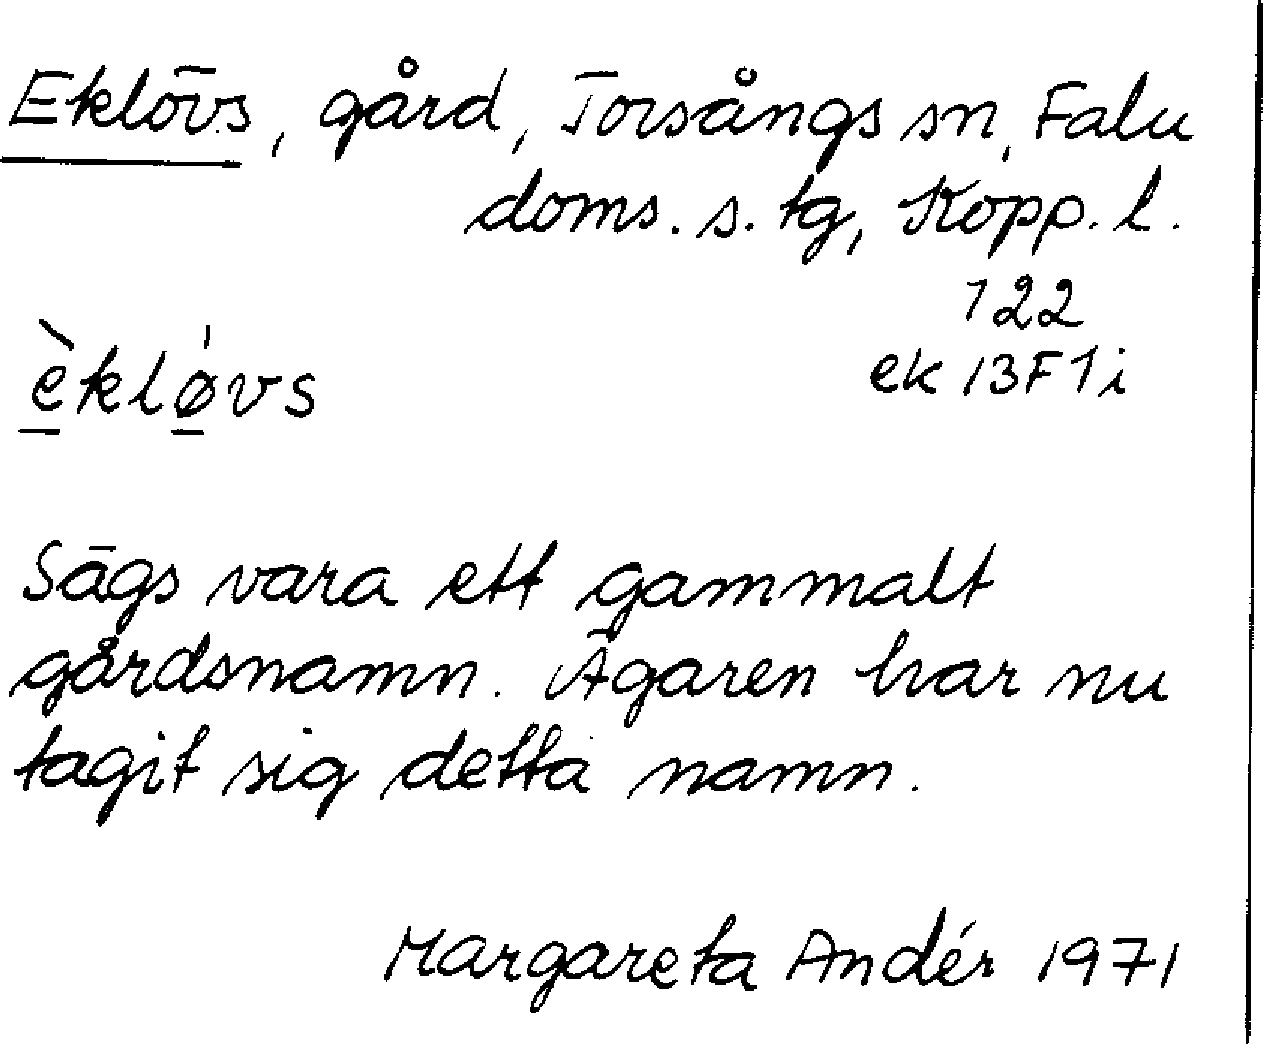 Eklövs, gård, Torsångs sn, Falu
doms. s. tg, Kopp. l.
122
ek 13F1i
è̱klǿ̱vs
Sägs vara ett gammalt
gårdsnamn. Ägaren har nu
tagit sig detta namn.
Margareta Andér 1971